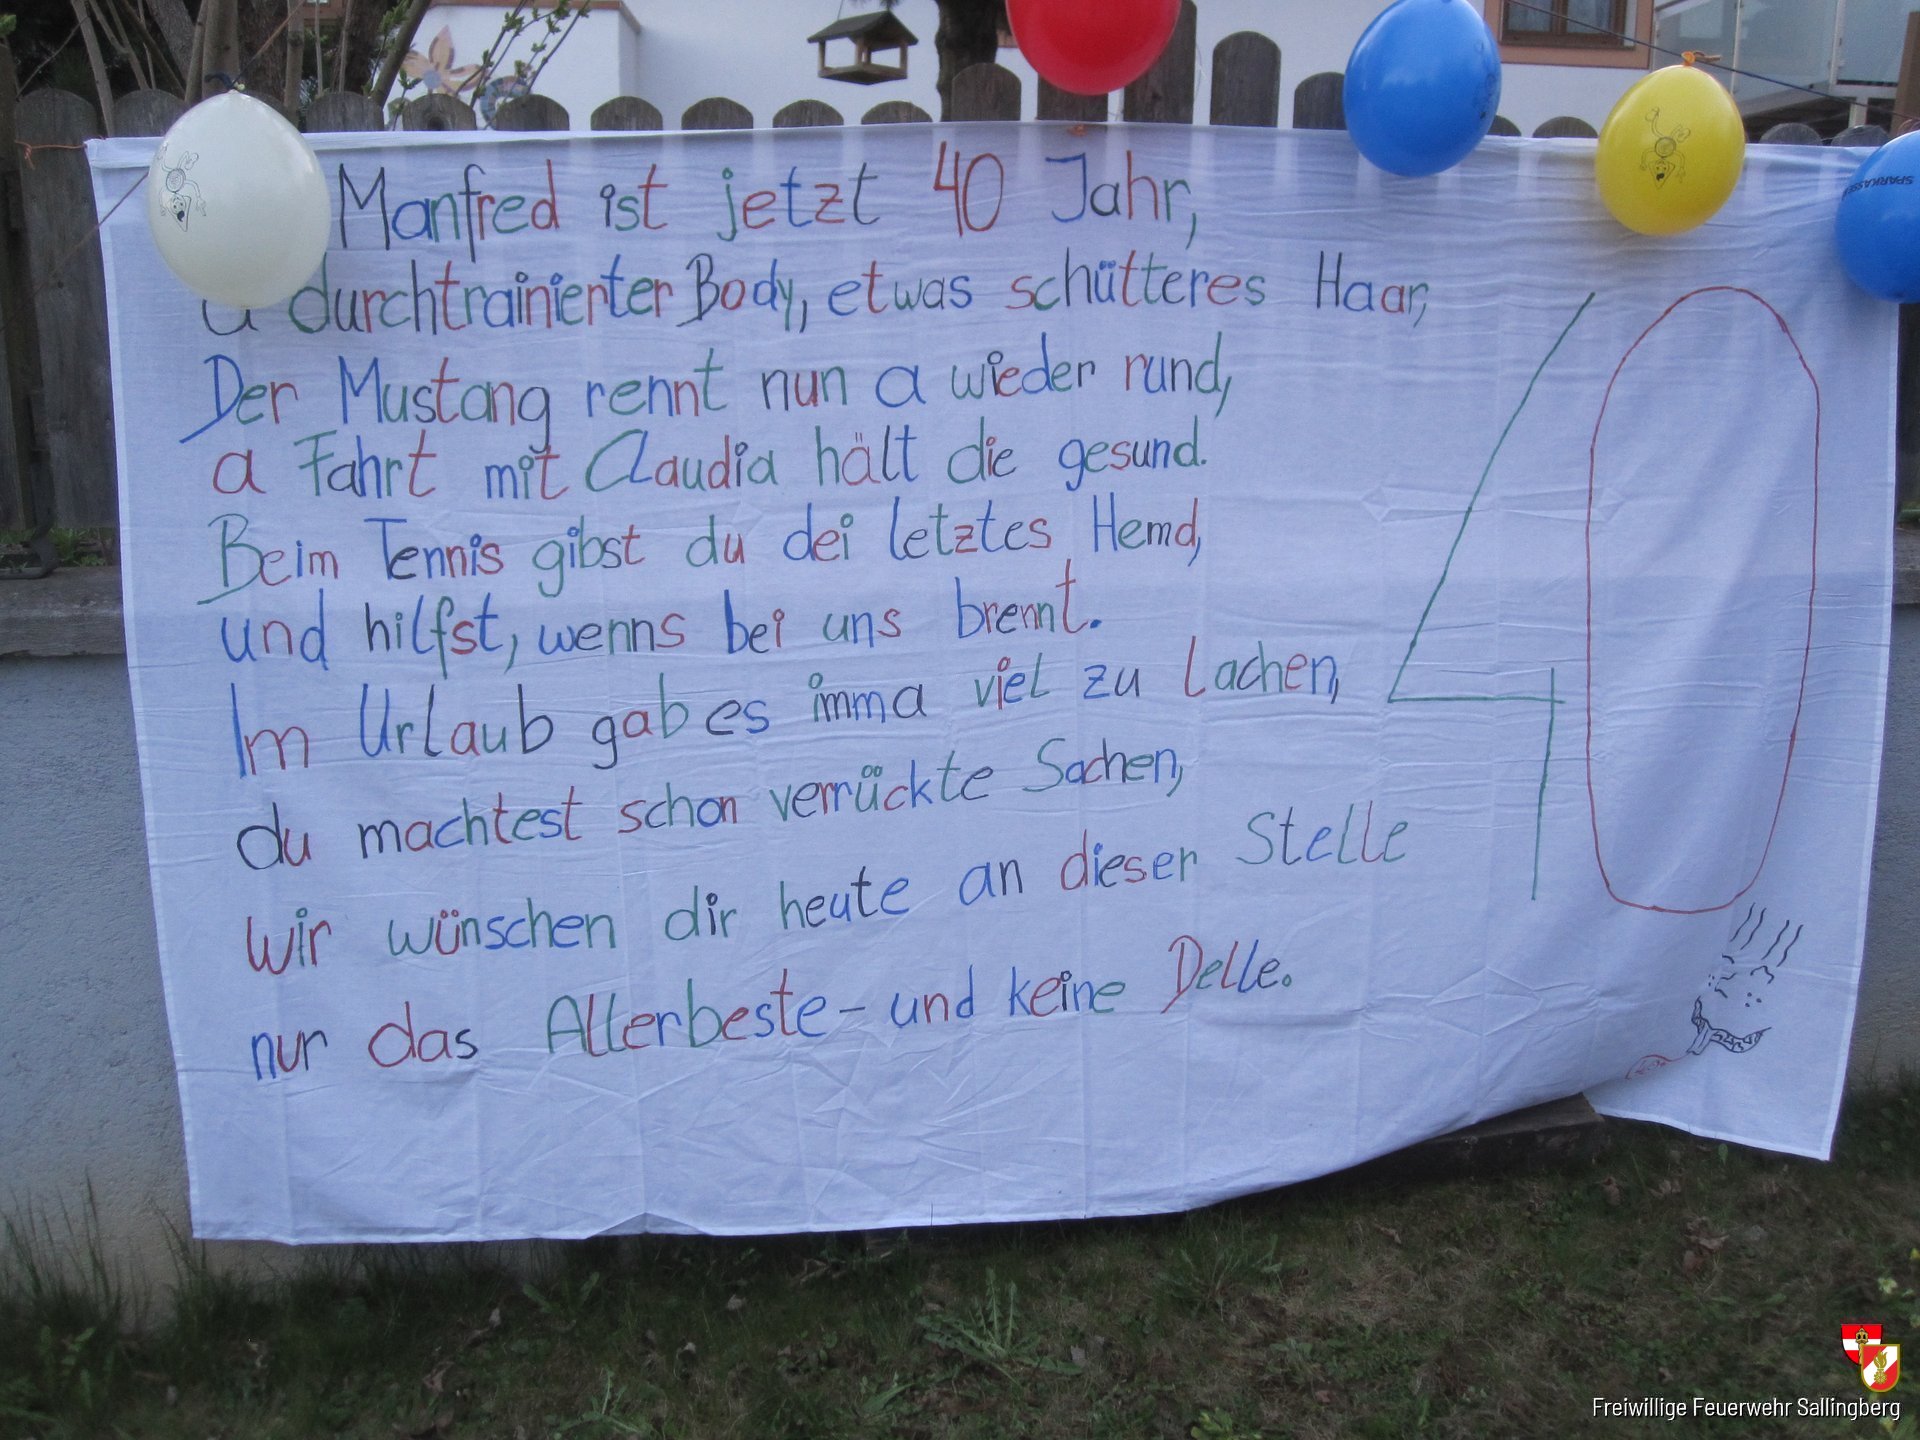 Manfred ist jetzt 40 Jahr,
a durchtrainierter Body, etwas schütteres Haar,
Der Mustang rennt nun a wieder rund,
a Fahrt mit Claudia hält die gesund.
Beim Tennis gibst du dei letztes Hemd,
und hilfst, wenns bei uns brennt.
Im Urlaub gab es imma viel zu lachen,
du machtest schon verrückte Sachen,
wir wünschen dir heute an dieser Stelle
nur das Allerbeste - und keine Delle.
40
SPARKASSE
Freiwillige Feuerwehr Sallingberg